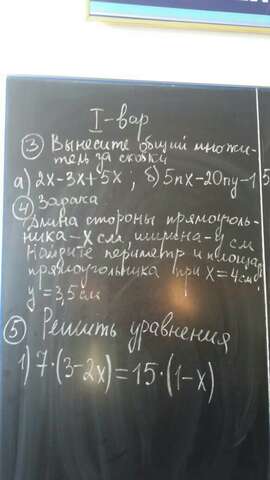 I-вар
③ Вынесите общий множи-
тель за скобки
а) 2x-3x+5x ; б) 5nx-20ny-15
④ Задача
Длина стороны прямоуголь-
ника -x см, ширина-y см
Найдите периметр и площадь
прямоугольника при x=4см
y=3,5см
⑤ Решить уравнения
1) 7·(3-2x)=15·(1-x)